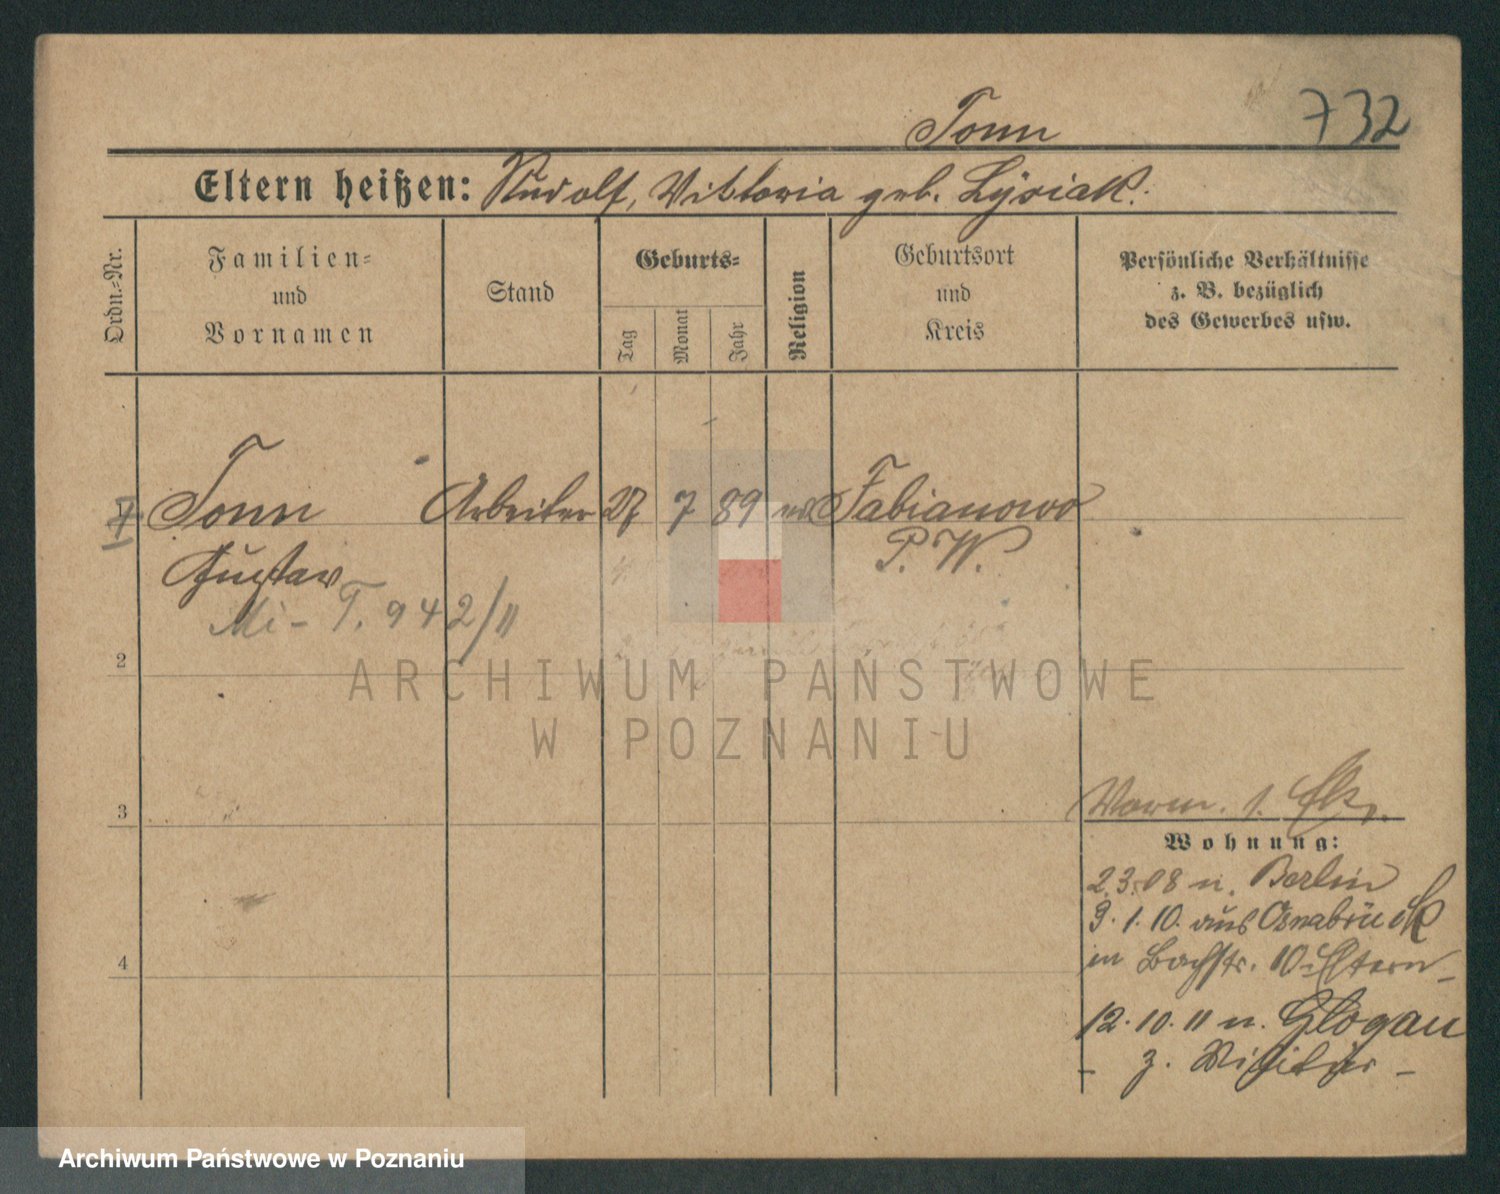 Tonn
732
Eltern heißen: Rudolf, Viktoria geb. Lysiak.
Ordn.-Nr.
Familien-
und
Vornamen
Stand
Geburts-
Tag
Monat
Jahr
Religion
Geburtsort
und
Kreis
Persönliche Verhältnisse
z. B. bezüglich
des Gewerbes usw.
Tonn Arbeiter 27 7 89 Fabianowo
Gustav P. W.
Mi - T. 942/11
2
ARCHIWUM PAŃSTWOWE
W POZNANIU
3
Wohnung:
2.3.08 n. Berlin
9.1.10. aus Osnabrück
in Bachstr. 10 Eltern
4
12.10.11 n. Glogau
- z. Militär -
Archiwum Państwowe w Poznaniu